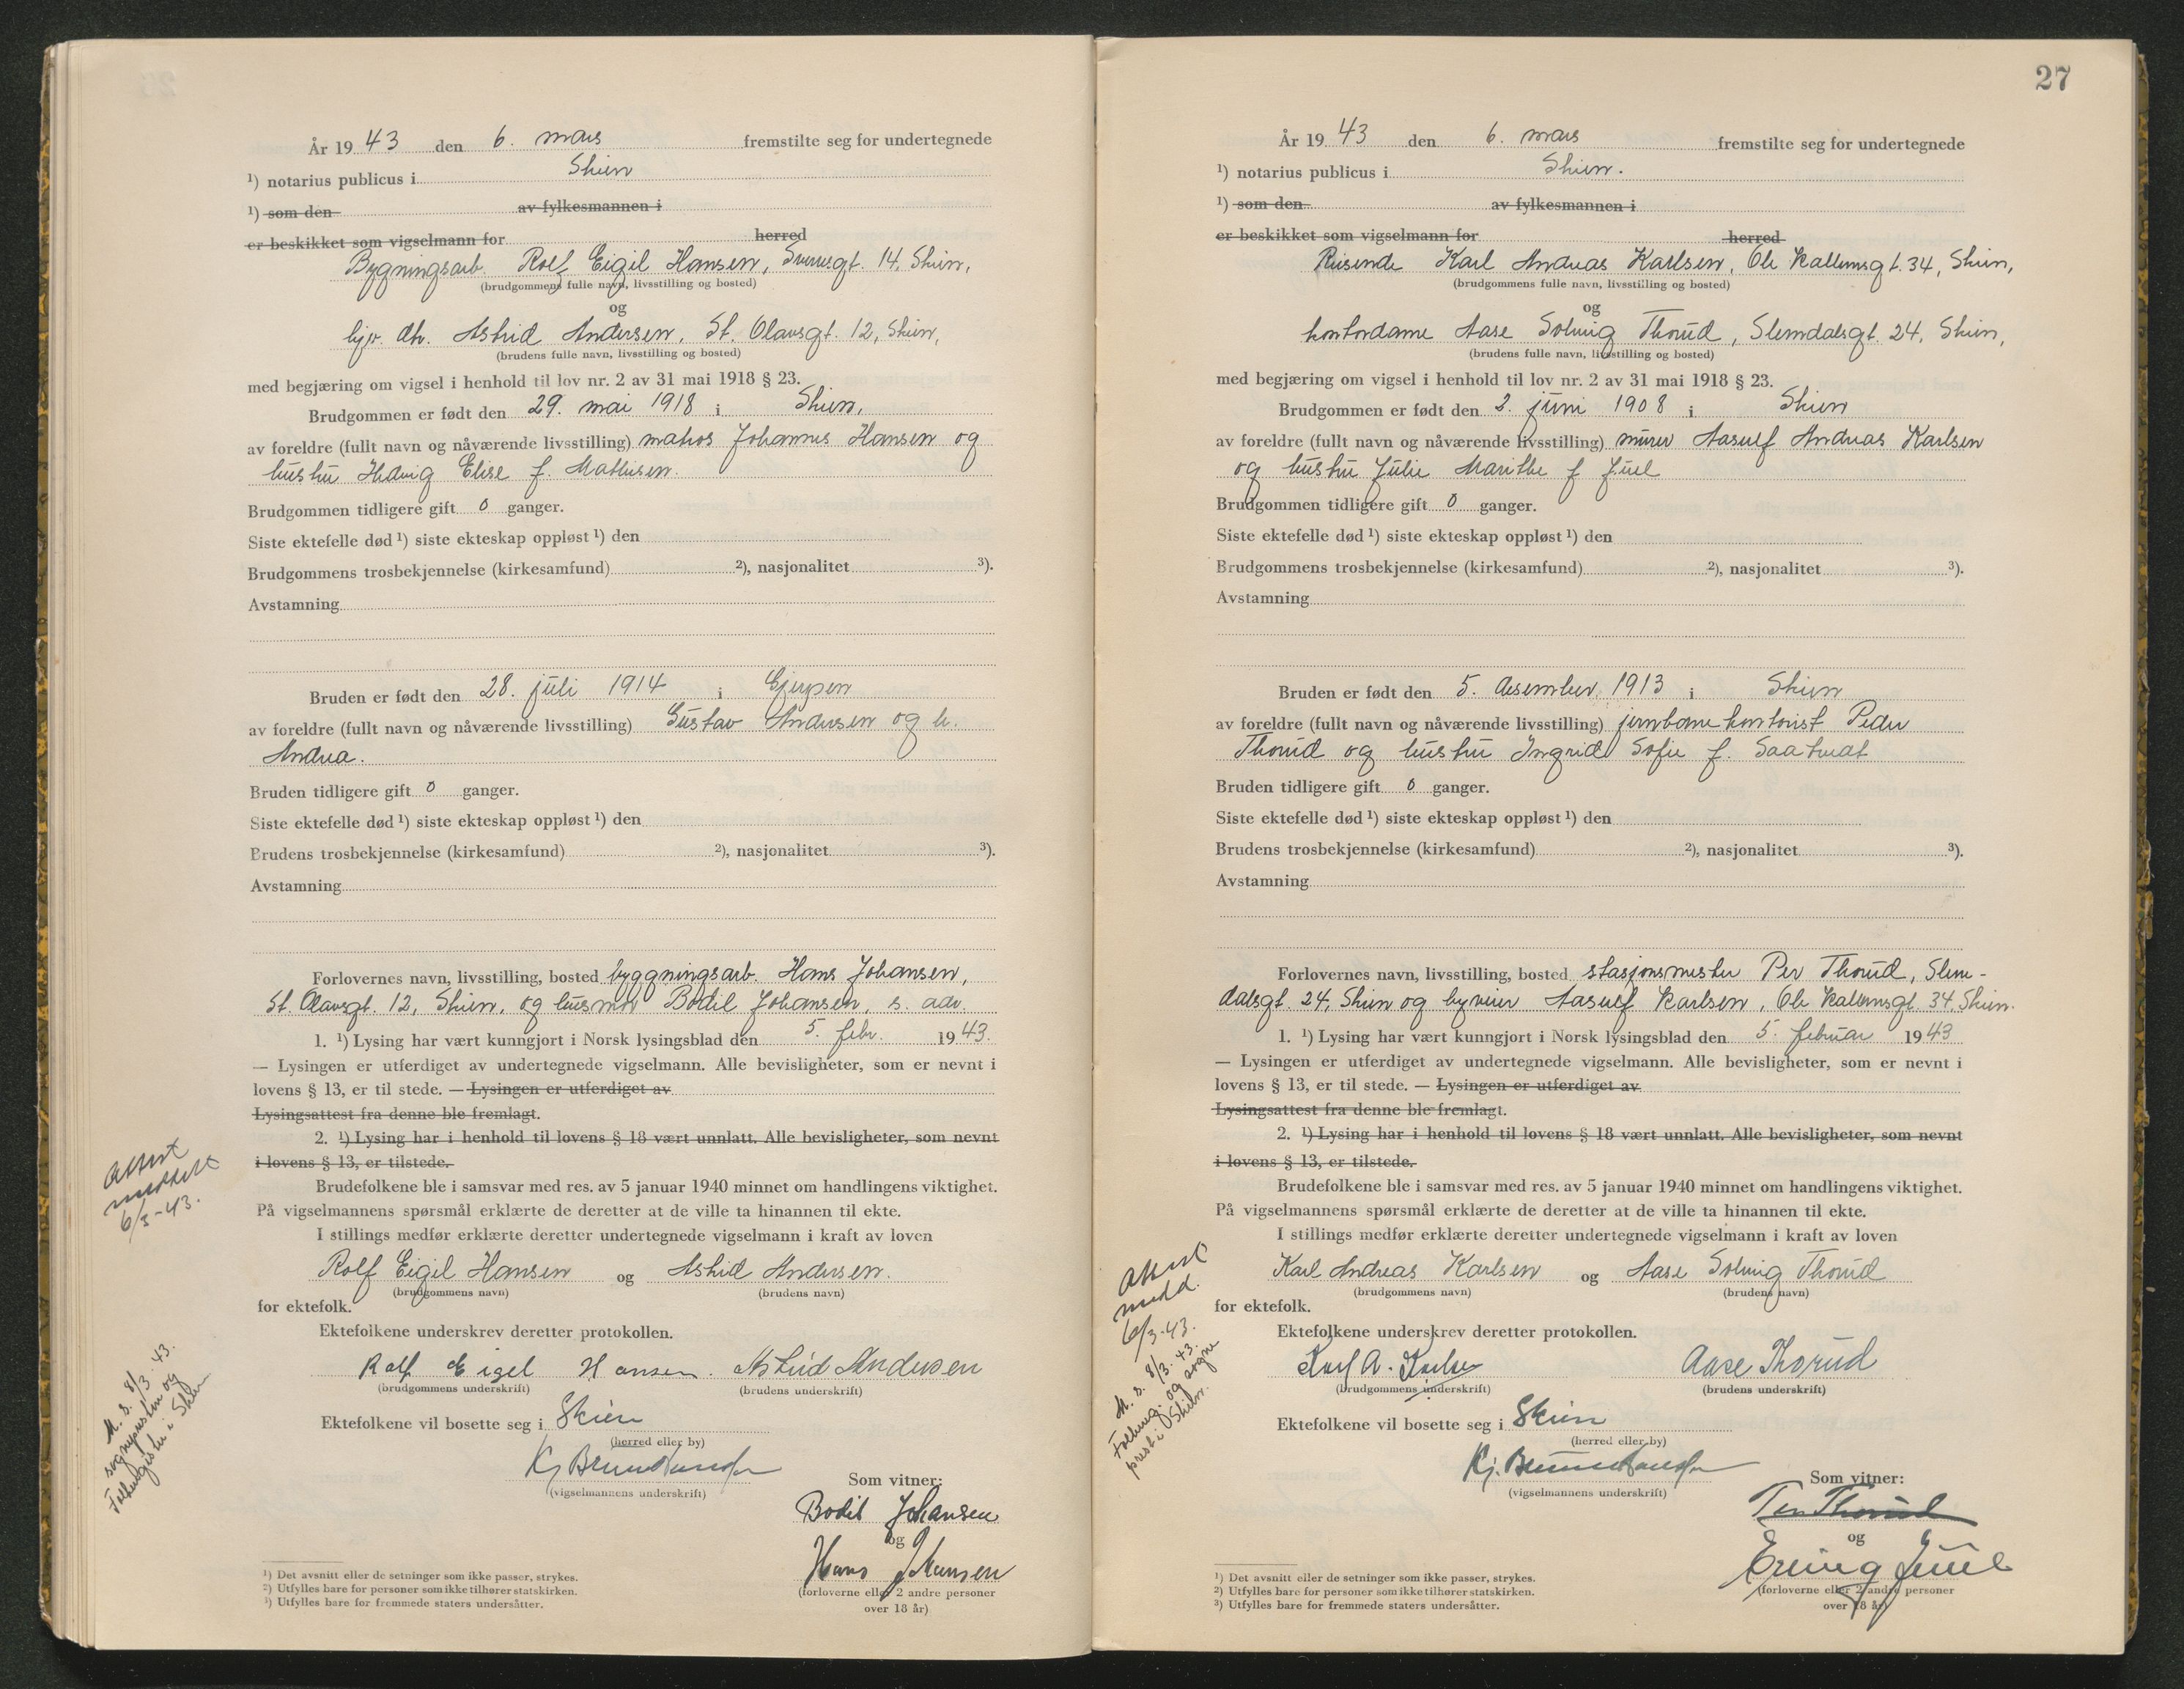 År 19 43 den 6. mars fremstilte seg for undertegnede
1) notarius publicus i Skien
1) som den av fylkesmannen i
er beskikket som vigselmann for herred
Bygningsarb. Rolf Eigil Hansen, Sverresgt. 14, Skien,
(brudgommens fulle navn, livsstilling og bosted)
og
hjv. dtr. Astrid Andersen, St. Olavsgt. 12, Skien,
(brudens fulle navn, livsstilling og bosted)
med begjæring om vigsel i henhold til lov nr. 2 av 31 mai 1918 § 23.
Brudgommen er født den 29. mai 1918 i Skien,
av foreldre (fullt navn og nåværende livsstilling) matros Johannes Hansen og
hustru Hedvig Elise f. Mathisen.
Brudgommen tidligere gift 0 ganger.
Siste ektefelle død 1) siste ekteskap oppløst 1) den
Brudgommens trosbekjennelse (kirkesamfund) 2), nasjonalitet 3).
Avstamning
Bruden er født den 28. juli 1914 i Gjerpen
av foreldre (fullt navn og nåværende livsstilling) Gustav Andersen og h.
Andrea.
Bruden tidligere gift 0 ganger.
Siste ektefelle død 1) siste ekteskap oppløst 1) den
Brudens trosbekjennelse (kirkesamfund) 2), nasjonalitet 3).
Avstamning
Forlovernes navn, livsstilling, bosted byggningsarb. Hans Johansen,
St. Olavsgt. 12, Skien, og husmor Bodil Johansen, s. adr.
1. 1) Lysing har vært kunngjort i Norsk lysingsblad den 5. febr. 19 43.
— Lysingen er utferdiget av undertegnede vigselmann. Alle bevisligheter, som er nevnt i
lovens § 13, er til stede. — Lysingen er utferdiget av
Lysingsattest fra denne ble fremlagt.
2. 1) Lysing har i henhold til lovens § 18 vært unnlatt. Alle bevisligheter, som nevnt
i lovens § 13, er tilstede.
Brudefolkene ble i samsvar med res. av 5 januar 1940 minnet om handlingens viktighet.
På vigselmannens spørsmål erklærte de deretter at de ville ta hinannen til ekte.
I stillings medfør erklærte deretter undertegnede vigselmann i kraft av loven
Rolf Eigil Hansen og Astrid Andersen.
(brudgommens navn) (brudens navn)
for ektefolk.
Ektefolkene underskrev deretter protokollen.
Rolf Eigel Hansen. Astrid Andersen
(brudgommens underskrift) (brudens underskrift)
Ektefolkene vil bosette seg i Skien
(herred eller by)
(vigselmannens underskrift)
Som vitner:
Bodil Johansen
og
Hans Johansen
(forloverne eller 2 andre personer
over 18 år)
1) Det avsnitt eller de setninger som ikke passer, strykes.
2) Utfylles bare for personer som ikke tilhører statskirken.
3) Utfylles bare for fremmede staters undersåtter.
Attest
meddelt
6/3-43.
M. s. 8/3. 43.
sognepresten og
Folkeregistr. i Skien
27
År 19 43 den 6. mars fremstilte seg for undertegnede
1) notarius publicus i Skien.
1) som den av fylkesmannen i
er beskikket som vigselmann for herred
Reisende Karl Andreas Karlsen, Ole Kallemsgt. 34, Skien,
(brudgommens fulle navn, livsstilling og bosted)
og
kontordame Aase Solveig Thorud, Slemdalsgt. 24, Skien,
(brudens fulle navn, livsstilling og bosted)
med begjæring om vigsel i henhold til lov nr. 2 av 31 mai 1918 § 23.
Brudgommen er født den 2. juni 1908 i Skien
av foreldre (fullt navn og nåværende livsstilling) murer Aasulf Andreas Karlsen
og hustru Julie Marithe f Juel
Brudgommen tidligere gift 0 ganger.
Siste ektefelle død 1) siste ekteskap oppløst 1) den
Brudgommens trosbekjennelse (kirkesamfund) 2), nasjonalitet 3).
Avstamning
Bruden er født den 5. desember 1913 i Skien
av foreldre (fullt navn og nåværende livsstilling) jernbanekontorist Peder
Thorud og hustru Ingrid Sofie f.
Bruden tidligere gift 0 ganger.
Siste ektefelle død 1) siste ekteskap oppløst 1) den
Brudens trosbekjennelse (kirkesamfund) 2), nasjonalitet 3).
Avstamning
Forlovernes navn, livsstilling, bosted stasjonsmester Per Thorud, Slem-
dalsgt. 24, Skien og Aasulf Karlsen, Ole Kallemsgt. 34, Skien.
1. 1) Lysing har vært kunngjort i Norsk lysingsblad den 5. februar 19 43
— Lysingen er utferdiget av undertegnede vigselmann. Alle bevisligheter, som er nevnt i
lovens § 13, er til stede. — Lysingen er utferdiget av
Lysingsattest fra denne ble fremlagt.
2. 1) Lysing har i henhold til lovens § 18 vært unnlatt. Alle bevisligheter, som nevnt
i lovens § 13, er tilstede.
Brudefolkene ble i samsvar med res. av 5 januar 1940 minnet om handlingens viktighet.
På vigselmannens spørsmål erklærte de deretter at de ville ta hinannen til ekte.
I stillings medfør erklærte deretter undertegnede vigselmann i kraft av loven
Karl Andreas Karlsen og Aase Solveig Thorud
(brudgommens navn) (brudens navn)
for ektefolk.
Ektefolkene underskrev deretter protokollen.
Karl A. Karlsen Aase Thorud
(brudgommens underskrift) (brudens underskrift)
Ektefolkene vil bosette seg i Skien
(herred eller by)
(vigselmannens underskrift)
Som vitner:
Per Thorud
og
Erling Juul
(forloverne eller 2 andre personer
over 18 år)
1) Det avsnitt eller de setninger som ikke passer, strykes.
2) Utfylles bare for personer som ikke tilhører statskirken.
3) Utfylles bare for fremmede staters undersåtter.
Attest
medd.
6/3-43.
M. s. 8/3. 43.
Folkereg. og sogne
prest i Skien.